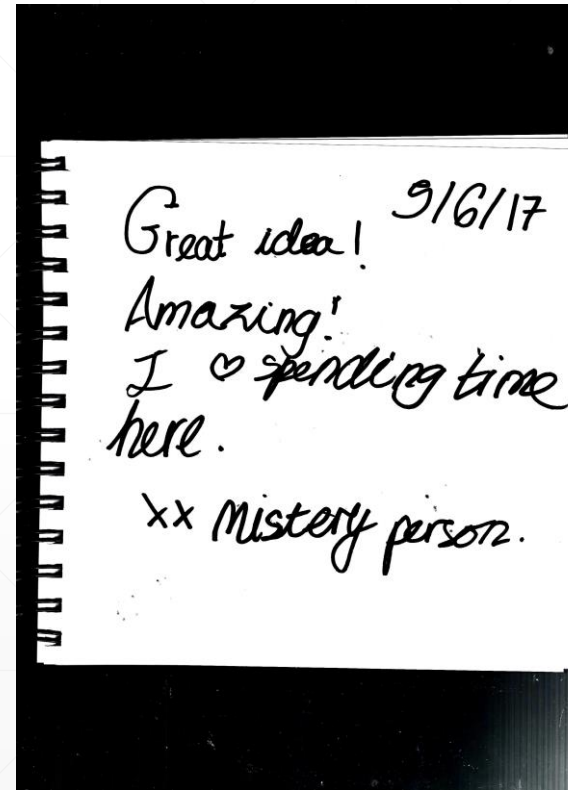 9/6/17
Great idea!
Amazing!
I ♡ spending time
here.
xx mistery person.